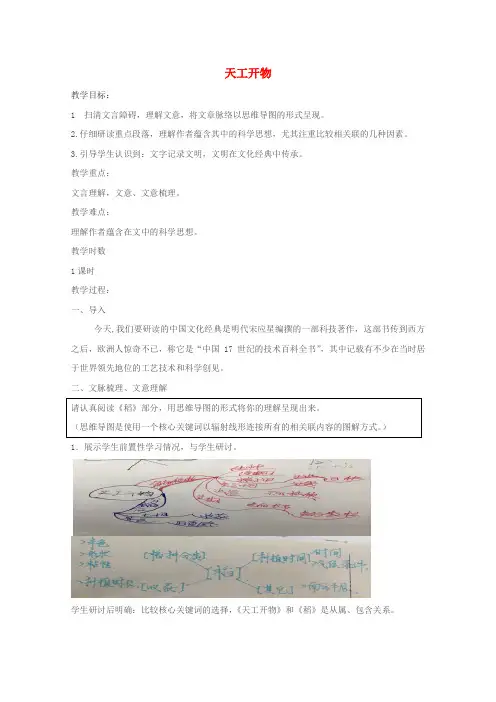 天工开物
教学目标：
1 扫清文言障碍，理解文意，将文章脉络以思维导图的形式呈现。
2.仔细研读重点段落，理解作者蕴含其中的科学思想，尤其注重比较相关联的几种因素。
3.引导学生认识到：文字记录文明，文明在文化经典中传承。
教学重点：
文言理解，文意、文意梳理。
教学难点：
理解作者蕴含在文中的科学思想。
教学时数
1课时
教学过程：
一、导入
今天,我们要研读的中国文化经典是明代宋应星编撰的一部科技著作，这部书传到西方
之后，欧洲人惊奇不已，称它是“中国 17 世纪的技术百科全书”，其中记载有不少在当时居
于世界领先地位的工艺技术和科学创见。
二、文脉梳理、文意理解
请认真阅读《稻》部分，用思维导图的形式将你的理解呈现出来。
（思维导图是使用一个核心关键词以辐射线形连接所有的相关联内容的图解方式。）
1．展示学生前置性学习情况，与学生研讨。
天工开物
[稻]
[其它]
时间
学生研讨后明确：比较核心关键词的选择，《天工开物》和《稻》是从属、包含关系。